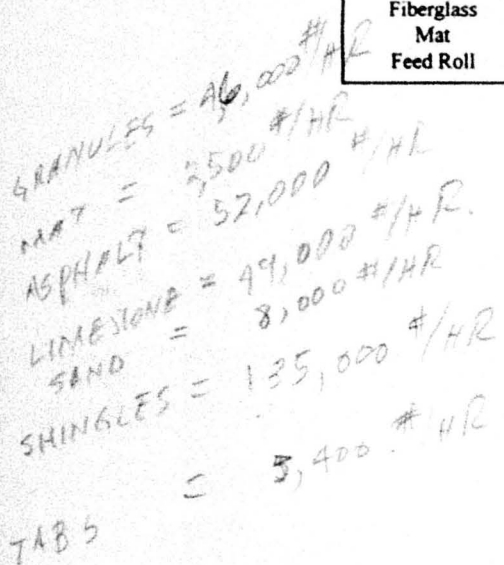 Fiberglass
Mat
Feed Roll
GRANULES = 46,000 #/HR
MAT = 2,500 #/HR
ASPHALT = 52,000 #/HR
LIMESTONE = 49,000 #/HR.
SAND = 8,000 #/HR
SHINGLES = 135,000 #/HR
TABS = 5,400 # HR